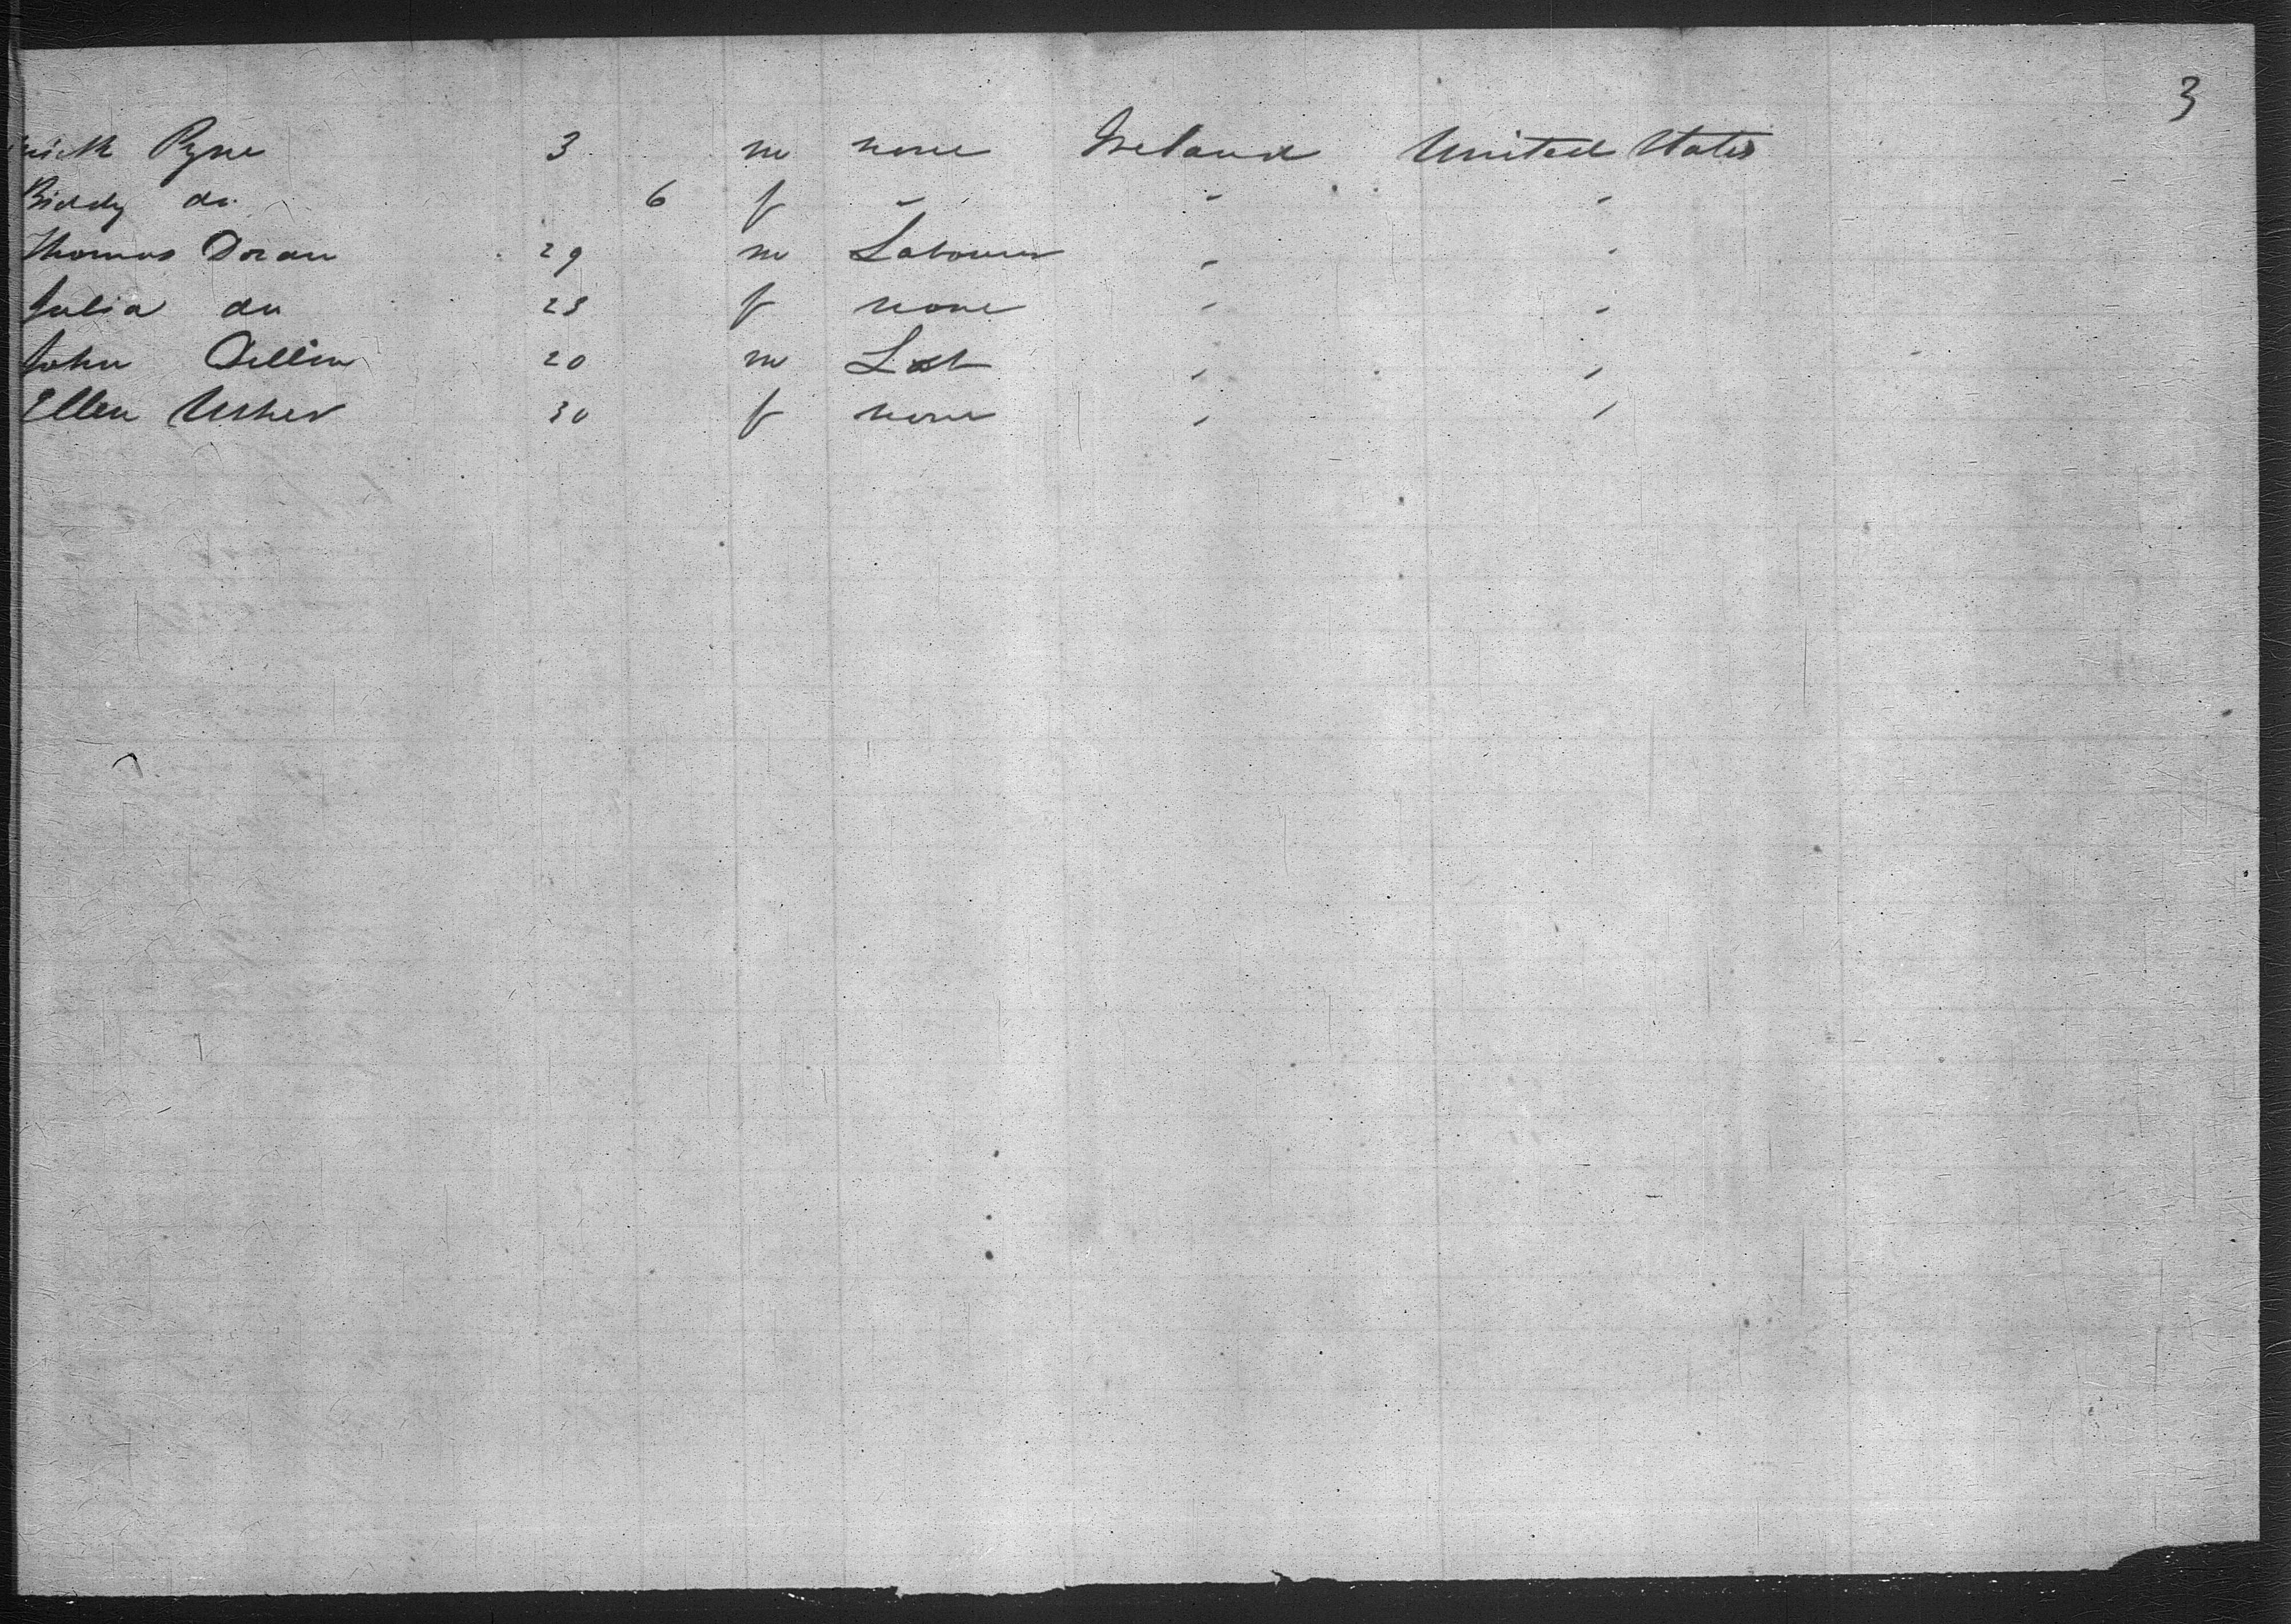 3
Pyne 3 m none Ireland United States
Biddy do 6 f " " "
Thomas Doran 29 m Labourer " "
Julia do 23 f none " "
John Dillon 20 m Lab " "
Ellen Usher 30 f none " "